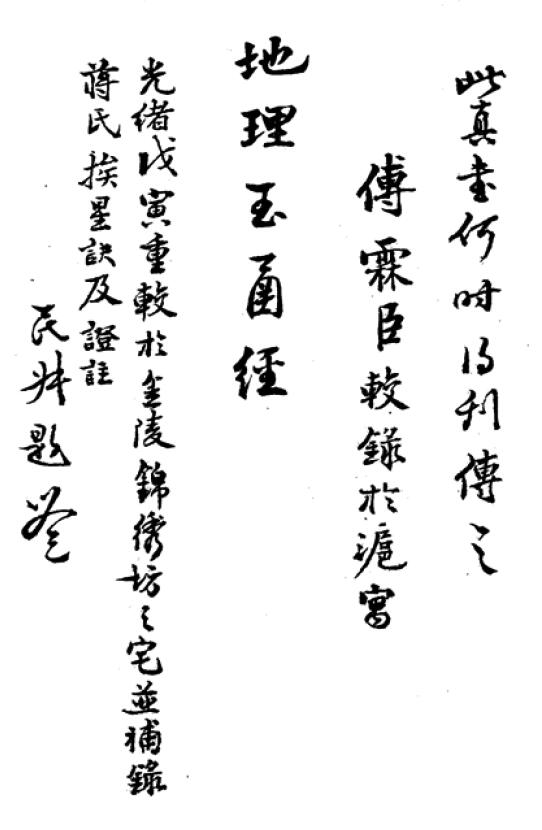 此真書何時得刊傳之
傅霖臣較錄於滬寓
地理玉函經
光緒戊寅重較於金陵錦衣坊之宅並補錄
蔣氏挨星訣及證註
題簽